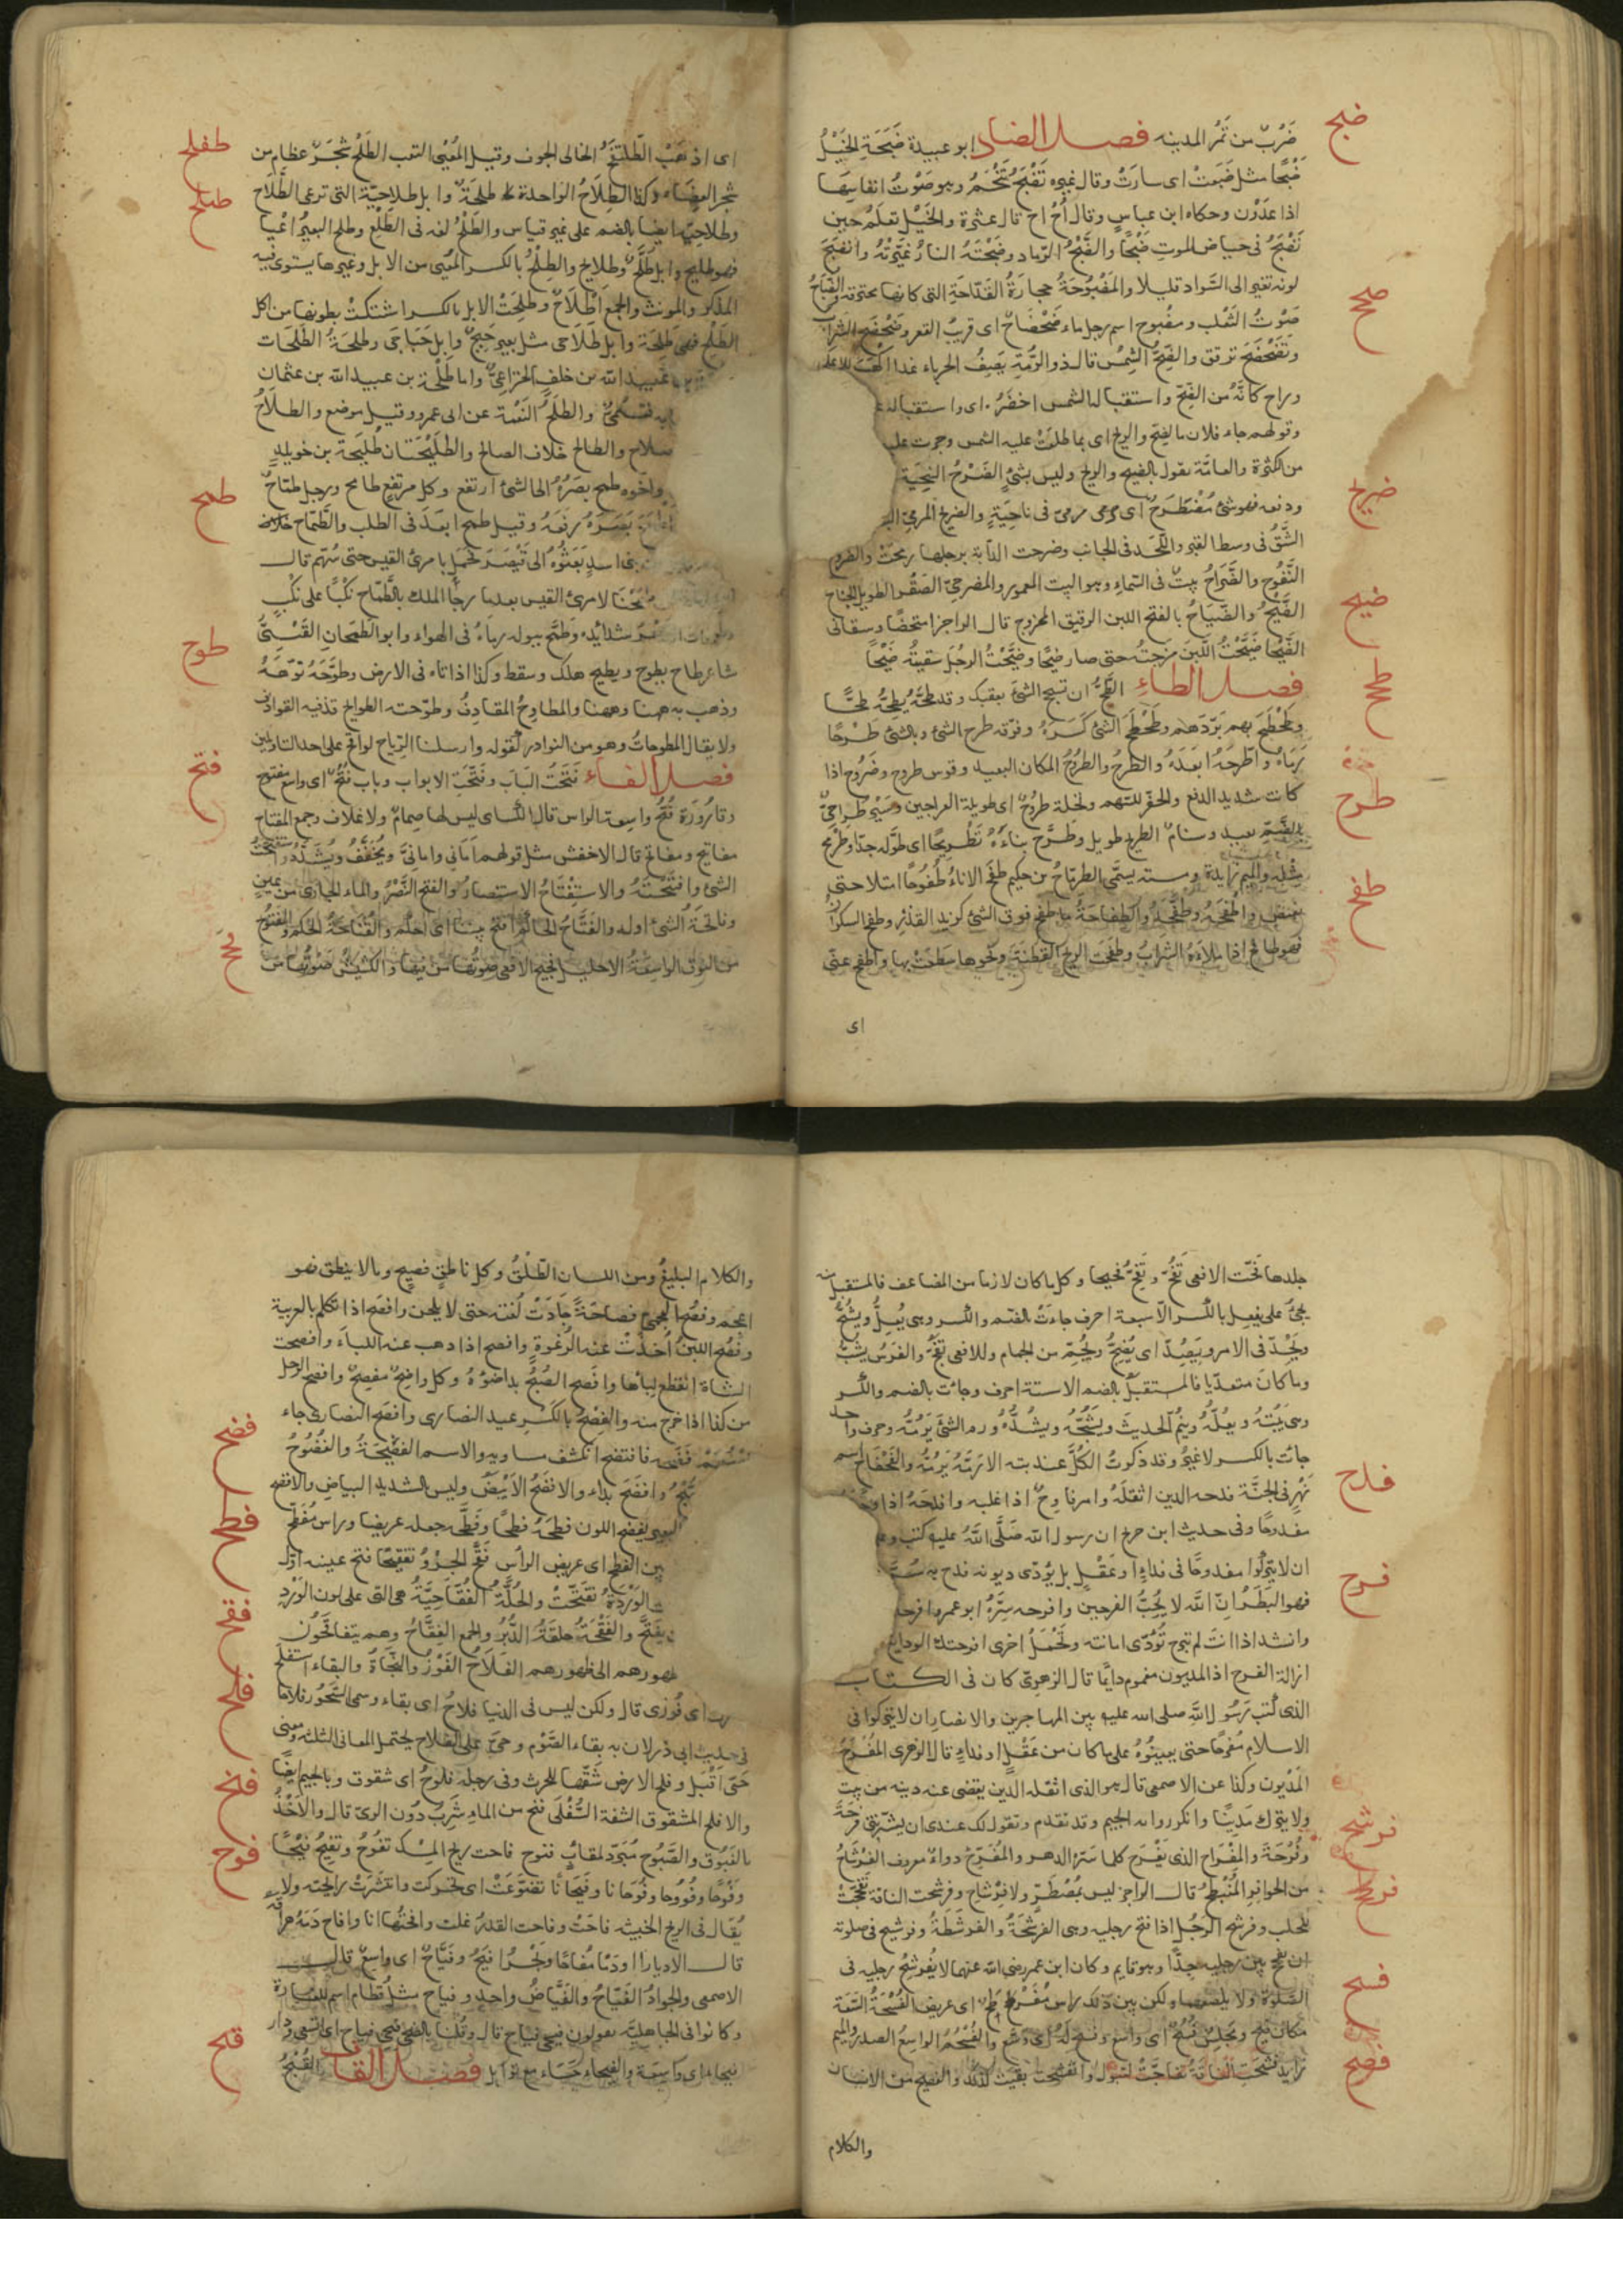 ضبح
ضرب من تمر المدينه فصل الضاد ابو عبيدة ضبحة الخيل
ضبحا مثل ضبعت اى سارت وقال غيره تضبح تنحم وهو صوت انفاسها
اذا عدون وحكاه ابن عباس وقال أح اح قال عنترة والخيل تعلم حين
تضبح فى حياض الموت ضبحا والضبح الرماد وضبحته النار غيرته وانضبح
لونه تغير الى السواد قليلا والمضبوحة حجارة القداحة التى كانها محترقه والضباح
صوت الثعلب ومضبوح اسم رجل ماء ضحضاح اى قريب القعر وضحضح السراب
ضحح
وتضحضح ترقرق والضح الشمس قال ذو الرمة يصف الحرباء غدا اكهب الاعلى
وراح كانه من الضح واستقباله الشمس اخضر اى واستقباله
وقولهم جاء فلان بالضح والريح اى بما طلعت عليه الشمس وجرت عليه
من الكثرة والعامة تقول بالضيح والريح وليس بشئ الضرح التنحية
ضرح
ودفعه فهو شئ مضطرح اى مرمى فى ناحية والضريح
الشق فى وسط القبر واللحد فى الجانب وضرحت الدابة برجلها رمحت والضروح
النفوح والضراح بيت فى السماء وهو البيت المعمور والمضرحى الصقر الطويل الجناح
ضيح
الضيح والضياح بالفتح اللبن الرقيق الممزوج قال الراجز امتحضا وسقانى
الضيحا ضيحت اللبن مزجته حتى صار ضيحا وضيحت الرجل سقيته ضيحا
طحح
فصل الطاء الطح ان تسحج الشئ بعقبك وقد طحه يطحه طحا
وطحطح بهم بددهم وطحطح الشئ كسره وفرقه طرح الشئ وبالشئ طرحا
طرح
رماه واطرحه ابعده والطرح والطروح المكان البعيد وقوس طروح وضروح اذا
كانت شديد الدفع والحفز للسهم ونخلة طروح اى طويلة العراجين وسير طراحى
بالضم بعيد وسنام اطريح طويل وطرح بناءه تطريحا اى طوله جدا وطرمح
مثله والميم زايدة ومنه يسمى الطرماح بن حكيم طفح الاناء طفوحا امتلا حتى
طفح
يفيض واطفحه وطفحه والطفاحة ما طفح فوق الشئ كزبد القدر وطفح السكران
فهو طافح اذا ملاءه الشراب وطفحت الريح القطنة ونحوها سطعت بها واطفح عنى
اى
طفلح
اى اذهب الطلنفح الخالى الجوف وقيل المعيى التعب الطلح شجر عظام من
طلح
شجر العضاه وكذا الطلاح الواحدة طلحة وابل طلاحية التى ترعى الطلاح
وطلاحية ايضا بالضم على غير قياس والطلح لغه فى الطلع وطلح البعير اعيا
فهو طليح وابل طلح وطلايح والطلح بالكسر المعيى من الابل وغيرها يستوى فيه
المذكر والمونث والجمع اطلاح وطلحت الابل بالكسر اشتكت بطونها من اكل
الطلح فهى طلحة وابل طلاحى مثل بعير حبج وابل حباجى وطلحة الطلحات
عبيد الله بن خلف الخزاعى واما طلحة بن عبيد الله بن عثمان
والطلح النعمة عن ابى عمرو وقيل موضع والطلاح
والطالح خلاف الصالح والطليحتان طليحة بن خويلد
طمح
واخوه طمح بصره الى الشئ ارتفع وكل مرتفع طامح ورجل طماح
بصره رفعه وقيل طمح ابعد فى الطلب والطماح
بنى اسد بعثوه الى قيصر فمحل بامرئ القيس حتى سم قال
لامرئ القيس بعدما رجا الملك بالطماح نكبا على نكب
شدايده وطمح ببوله رماه فى الهواء وابو الطمحان القينى
طوح
شاعر طاح يطوح ويطيح هلك وسقط وكذا اذا تاه فى الارض وطوحه توهه
وذهب به ههنا وههنا والمطاوح المقاذف وطوحته الطوايح قذفيه القواذف
ولا يقال المطوحات وهو من النوادر كقوله وارسلنا الرياح لواقح على احد التاويلين
فتح
فصل الفاء فتحت الباب وفتحت الابواب وباب فتح اى واسع مفتوح
وقارورة فتح واسعة الراس قال الكساى ليس لها صمام ولا غلاف وجمع المفتاح
مفاتيح ومفاتح قال الاخفش مثل قولهم امانى وامانى ويخفف ويشدد واستفتحت
الشئ وافتتحته والاستفتاح الاستنصار والفتح النصر والماء الجارى من عين
وفاتحة الشئ اوله والفتاح الحاكم افتح بيننا اى احكم والفتاحة الحكم والفتوح
فحح
من النوق الواسعة الاحليل فحيح الافعى صوتها من فيها والكشيش صوتها من
جلدها فحت الافعى تفح وتفح فحيحا وكل ما كان لازما من المضاعف فالمستقبل منه
يجئ على يفعل بالكسر الا سبعة احرف جاءت بالضم والكسر وهى يعل ويشح
ويجد فى الامر ويصد اى يضج ويجم من الجمام وللافعى تفح والفرس يشب
وما كان متعديا فالمستقبل بالضم الا ستة احرف وجاءت بالضم والكسر
وهى يبته ويعله وينم الحديث ويشجه ويشده ورم الشئ يرمه وحرف واحد
جاءت بالكسر لا غير وقد ذكرت الكل عند بته الا رمه يرمه والفحفاح اسم
فدح
نهر فى الجنة فدحه الدين اثقله وامر فادح اذا غلبه وافدحه اذا
مفدوحا وفى حديث ابن جريج ان رسول الله صلى الله عليه كتب
ان لا يتركوا مفدوحا فى فداء او عقل بل يؤدى ديونه فدح به
فرح
فهو البطر ان الله لا يحب الفرحين وافرحه سره ابو عمرو افرحه
وانشد اذا انت لم تبرح تؤدى امانه وتحمل اخرى افرحتك الودايع
ازالة الفرح اذ المديون مغموم دايما قال الزهرى كان فى الكتاب
الذى كتب رسول الله صلى الله عليه بين المهاجرين والانصار ان لا يتركوا فى
الاسلام مفرحا حتى يعينوه على ما كان من عقل او فداء قال الزهرى المفرح
المديون وكذا عن الاصمعى قال هو الذى اثقله الدين يقضى عنه دينه من بيت
ولا يترك مدينا وانكر روايه الجيم وقد تقدم وتقول لك عندى ان بشرتنى فرحة
فرشح
وفرحة والمفراح الذى يفرح كلما سره الدهر والمفرح دواء معروف الفرشاح
فرطح
من الحوافر المنبطح قال الراجز ليس بمصطر ولا فرشاح وفرشحت الناقة تفحجت
للحلب وفرشح الرجل اذا فتح رجليه وهى الفرشحة والفرشطة وفرشح فى صلوته
فسح
ان يفحج بين رجليه جدا وهو قايم وكان ابن عمر رضى الله عنهما لا يفرشح رجليه فى
الصلوة ولا يلصقهما ولكن بين ذلك راس مفرطح اى عريض الفسحة السعة
مكان فسح ومجلس فسح اى واسع وفسح له اى وسع والفسحم الواسع الصدر والميم
فصح
زايدة فشحت الناقة تفاجت لتبول وانفشحت بقيت كذلك والفصيح من الانسان
والكلام
والكلام البليغ ومن اللسان الطلق وكل ناطق فصيح وما لا ينطق فهو
اعجم وفصح العجمى فصاحة جادت لغته حتى لا يلحن وافصح اذا تكلم بالعربية
وفصح اللبن اخذت عنه الرغوة وافصح اذا ذهب عنه اللباء وافصحت
الشاة انقطع لباها وافصح الصبح بدا ضوؤه وكل واضح مفصح وافصح الرجل
من كذا اذا خرج منه والفصح بالكسر عيد النصارى وافصح النصارى جاء
فضح
فصحهم فضحه فافتضح انكشف مساويه والاسم الفضيحة والفضوح
وافضح بداء والافضح الابيض وليس بالشديد البياض والافضح
فطح
البعير يفضح اللون فطحه فطحا وفطحه جعله عريضا وراس مفطح
بين الفطح اى عريض الراس فقح الجرو تفقيحا فتح عينيه اول
فقح
الوردة تفتحت والحلة الفقاحية هى التى على لون الورد
يفتح والفقحة حلقة الدبر والجمع الفقاح وهم يتفاقحون
فلح
ظهورهم الى ظهورهم الفلاح الفوز والنجاة والبقاء استفلح
اى فوزى قال ولكن ليس فى الدنيا فلاح اى بقاء وسمى السحور فلاحا
فى حديث ابى ذر لان به بقاء الصوم وحى على الفلاح يحتمل المعانى الثلثه ومعنى
حى اقبل وفلح الارض شقها للحرث وفى رجله فلوح اى شقوق وبالجيم ايضا
فنح
والافلح المشقوق الشفة السفلى فنح من الماء شرب دون الرى قال والاخذ
فوح
بالغبوق والصبوح مبردا لمقاب فنوح فاحت ريح المسك تفوح وتفيح فيحا
وفوحا وفووحا وفوحانا وفيحانا تضوعت اى تحركت وانتشرت رايحته ولا
يقال فى الريح الخبيثه فاحت وفاحت القدر غلت وافحتها انا وافاح دمه هراقه
قال الا ديارا او دما مفاحا وبحر افيح وفياح اى واسع قال
الاصمعى والجواد الفياح والفياض واحد وفياح مثل قطام اسم للغارة
وكانوا فى الجاهليه يقولون فيحى فياح قال وقلنا بالضحى فيحى فياح اى اتسعى ودار
قبح
فيحاء اى واسعة والفيحاء حساء مع توابل فصل القاف القبح